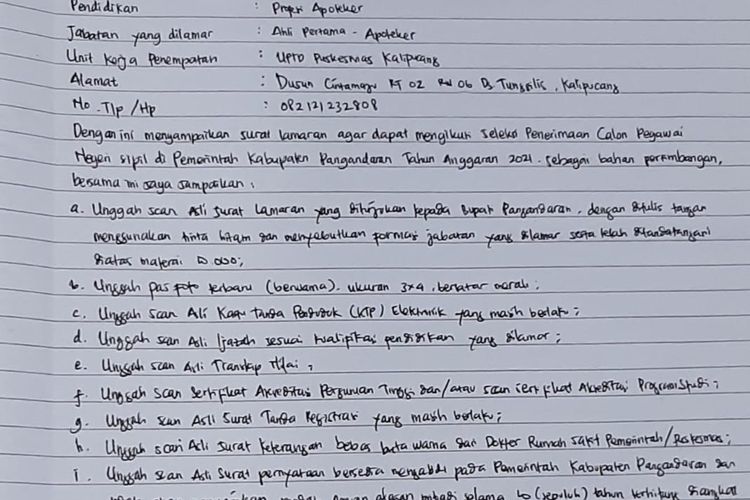 Pendidikan : Profesi Apoteker
Jabatan yang dilamar : Ahli Pertama - Apoteker
Unit Kerja Penempatan : UPTD Puskesmas Kalipucang
Alamat : Dusun Cintamaju RT 02 RW 06 Ds Tunggilis, Kalipucang
No. Tlp /Hp : 082121232808
Dengan ini menyampaikan surat lamaran agar dapat mengikuti seleksi Penerimaan Calon Pegawai
Negeri sipil di Pemerintah Kabupaten Pangandaran Tahun Anggaran 2021. sebagai bahan pertimbangan,
bersama ini saya sampaikan :
a. Unggah scan Asli Surat Lamaran yang ditujukan kepada Bupati Pangandaran, dengan ditulis tangan
menggunakan tinta hitam dan menyebutkan formasi jabatan yang dilamar serta telah ditandatangani
diatas materai 10.000;
b. Unggah pas foto terbaru (berwarna). ukuran 3x4, berlatar merah;
c. Unggah Scan Asli Kartu Tanda Penduduk (KTP) Elektronik yang masih berlaku;
d. Unggah scan Asli Ijazah sesuai kualifikasi pendidikan yang dilamar;
e. Unggah scan Asli Transkip Nilai;
f. Unggah Scan Sertifikat Akreditasi Perguruan Tinggi dan/atau scan sertifikat Akreditasi Program Studi;
g. Unggah scan Asli Surat Tanda Registrasi yang masih berlaku;
h. Unggah scan Asli Surat keterangan bebas buta warna dari Dokter Rumah Sakit Pemerintah/Puskesmas;
i. Unggah scan Asli Surat pernyataan bersedia mengabdi pada Pemerintah Kabupaten Pangandaran dan
alasan pribadi selama 10 (sepuluh) tahun terhitung diangkat